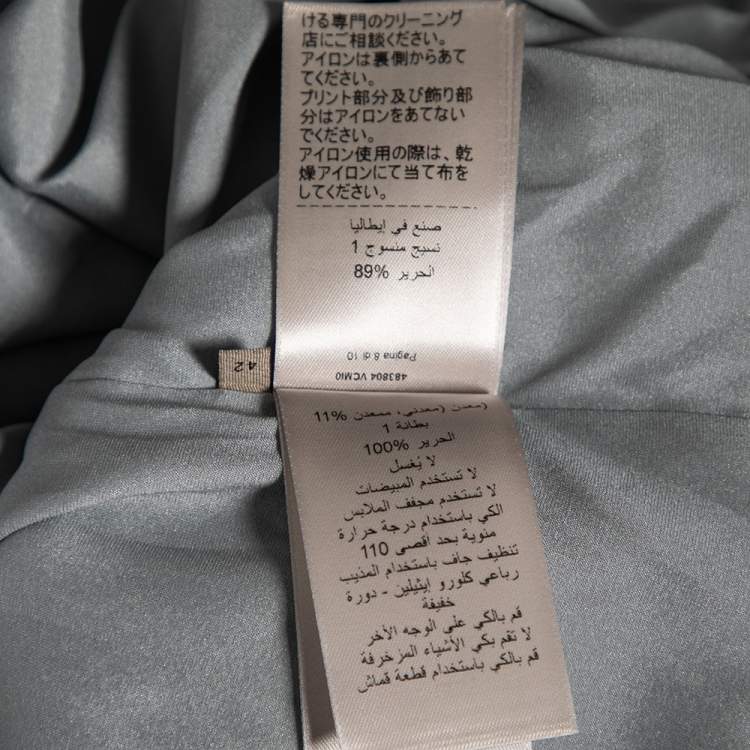 ける専門のクリーニング
店にご相談ください。
アイロンは裏側からあて
てください。
プリント部分及び飾り部
分はアイロンをあてない
でください。
アイロン使用の際は、乾
燥アイロンにて当て布を
してください。
صنع في إيطاليا
نسيج منسوج 1
الحرير 89%
Pagina 8 di 10
483804 VCMI0
42
(معدن (معدني، ممعدن 11%
بطانة 1
الحرير 100%
لا يُغسل
لا تستخدم المبيضات
لا تستخدم مجفف الملابس
الكي باستخدام درجة حرارة
مئوية بحد أقصى 110
تنظيف جاف باستخدام المذيب
رباعي كلورو إيثيلين - دورة
خفيفة
قم بالكي على الوجه الآخر
لا تقم بكي الأشياء المزخرفة
قم بالكي باستخدام قطعة قماش